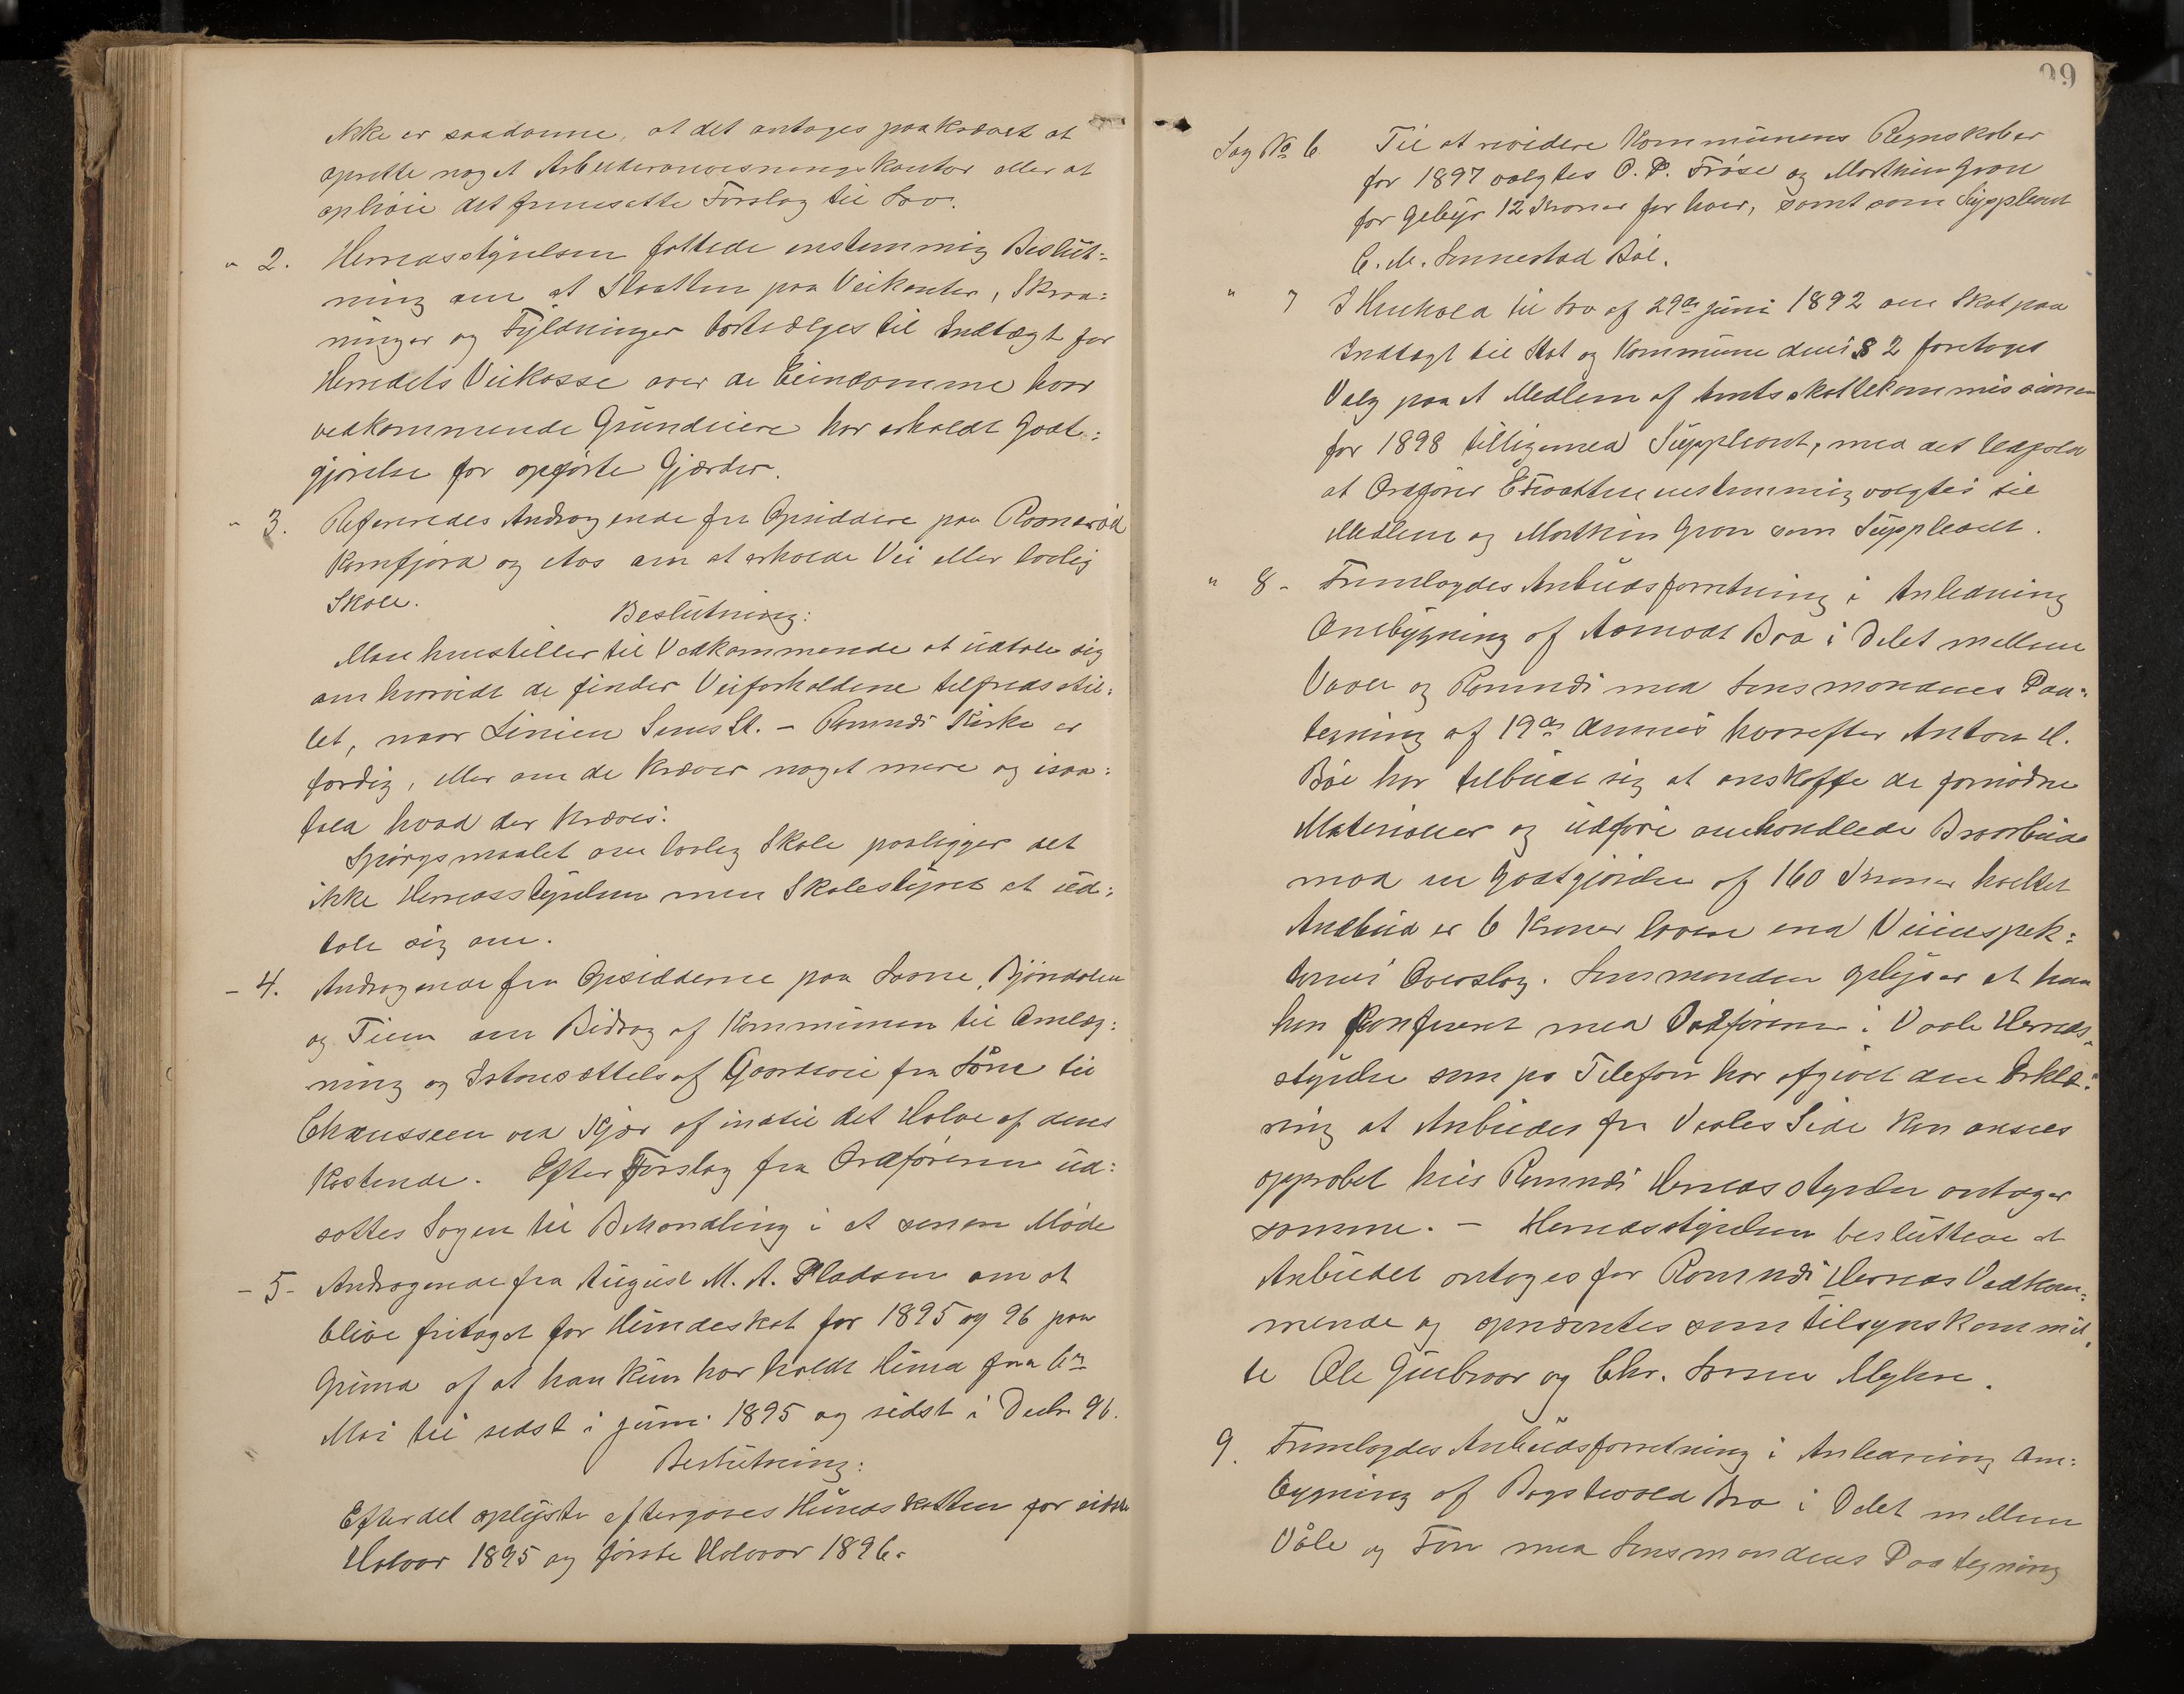 ikke er saadanne, at det antages paakrævet at
oprette noget Arbeideranvisningskontor eller at
ophøie det fremsatte Forslag til Lov.
" 2. Herredsstyrelsen fattede enstemmig Beslut-
ning om at Slaatten paa Veikanter, Skraa-
ninger og Fyldninger bortsælges til Indtægt for
Herredets Veikasse over de Eiendomme hvor
vedkommende Grundeiere har erholdt Godt-
gjørelse for opførte Gjærder.
" 3. Refereredes Andragende fra Opsiddere paa
Kornfjord og Aas om at erholde Vei eller lovlig
Skole.
Beslutning:
Man henstiller til Vedkommende at udtale sig
om hvorvidt de finder Veiforholdene tilfredsstil-
let, naar Linien Sems St. – Ramnæs Kirke er
færdig, eller om de kræver noget mere og isaa-
fald hvad der kræves.
Spørgsmaalet om lovlig Skole paaligger det
ikke Herredsstyrelsen men Skolestyret at ud-
tale sig om.
– 4. Andragende fra Opsidderne paa Søvne, Bjøndalen
og Tiem om Bidrag af Kommunen til Omlæg-
ning og Istandsættelse af Gaardsvei fra til
Chausseen ved Kjær af indtil det Halve af dens
Kostende. Efter Forslag fra Ordføreren ud-
sattes Sagen til Behandling i et senere Møde
– 5 – Andragende fra August M. A. Pladsen om at
blive fritaget for Hundeskat for 1895 og 96 paa
Grund af at han kun har holdt Hund fra 6te
Mai til sidst i Juni 1895 og sidst i Decbr 96.
Beslutning:
Efter det oplyste eftergives Hundskatten for sidste
Halvaar 1895 og første Halvaar 1896.
99
Sag No 6 Til at revidere Kommunens Regnskaber
for 1897 valgtes O. P. Frøse og Marthin Gran
for Gebyr 12 Kroner for hver, samt som Suppleant
C. M. Linnestad Bøl.
" 7 I Henhold til Lov af 29de Juni 1892 om Skat paa
Indtægt til Stat og Kommune dens § 2 foretoges
Valg paa et Medlem af Amtsskattekommissionen
for 1898 tilligemed Suppleant, med det Udfald
at Ordfører enstemmig valgtes til
Medlem og Marthin Gran som Suppleant.
" 8 – Fremlagdes Anbudsforretning i Anledning
Ombygning af Aamodt Bro i Delet mellem
Vaale og Ramnæs med Lensmandens Paa-
tegning af 19de dennes hvorefter Anton H.
Bøe har tilbudt sig at anskaffe de fornødne
Materialier og udføre omhandlede Broarbeide
mod en Godtgjørelse af 160 Kroner hvilket
Anbud er 6 Kroner lavere end Veiinspek-
tørens Overslag. Lensmanden oplyser at han
har konfereret med Ordføreren i Vaale Herreds-
styrelse som pr Telefon har afgivet den Erklæ-
ring at Anbudet fra Vaales Side kan ansees
approbert hvis Ramnæs Herredsstyrelse antager
samme. – Herredsstyrelsen besluttede at
Anbudet antages for Ramnæs Herreds Vedkom-
mende og opnævntes som Tilsynskommit-
te Ole Gulbvaar og Chr. Larsen Myhre.
9. Fremlagdes Anbudsforretning i Anledning Om-
bygning af Bro i Delet mellem
Våle og Fon med Lensmandens Paategning